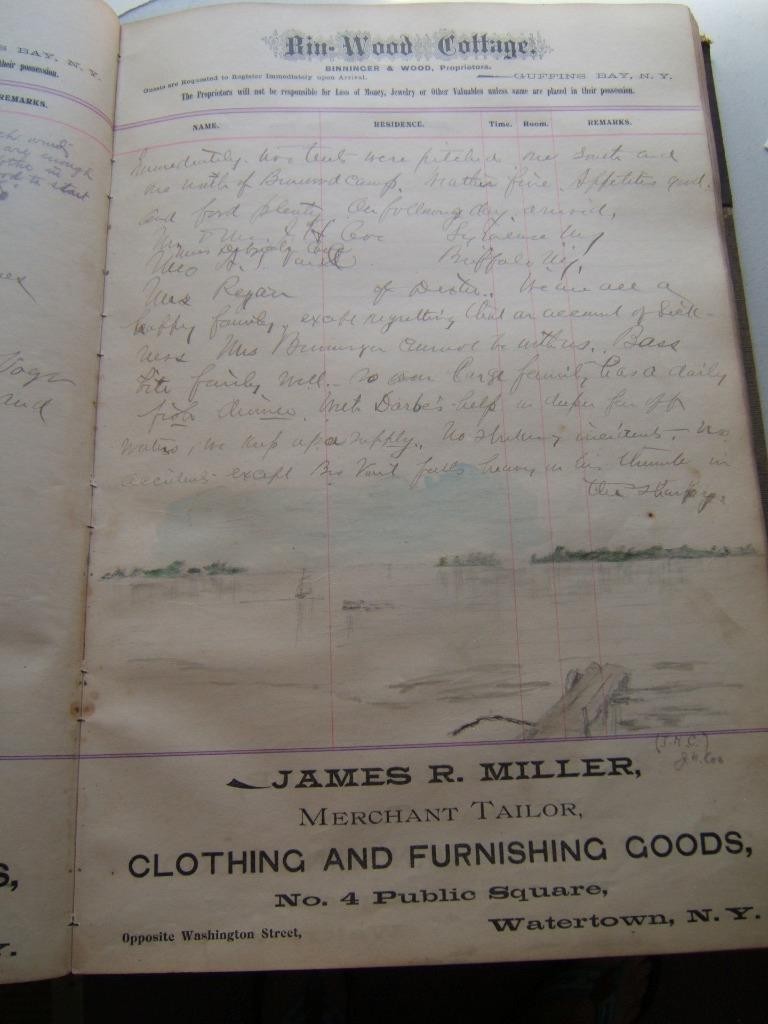 S BAY, N. Y.
their possession.
REMARKS.
Bin-Wood Cottage.
BINNINGER & WOOD, Proprietors.
Guests are Requested to Register Immediately upon Arrival.
GUFFINS BAY, N. Y.
The Proprietors will not be responsible for Loss of Money, Jewelry or Other Valuables unless same are placed in their possession.
NAME. RESIDENCE. Time. Room. REMARKS.
Immediately two tents were pitched one South and
one north of Binwood camp. Weather fine. Appetites good.
and food plenty. On following day arrived,
Mr & Mrs J. H Coo Syracuse NY
Miss
Mrs Buffalo NY,
Mrs Regan of Dexter. We are all a
happy family, except regretting that on account of Sick-
ness Mrs Binninger cannot be with us. Bass
bite fairly well. So our large family has a daily
fish dinner. With Darbe's help in deeper far off
waters, we keep up a supply. No striking incidents. no
accidents except falls heavy on his thumb in
the sharpy.
(J.H.C.)
J. H. Coo
JAMES R. MILLER,
MERCHANT TAILOR,
CLOTHING AND FURNISHING GOODS,
No. 4 Public Square,
Opposite Washington Street,
Watertown, N. Y.